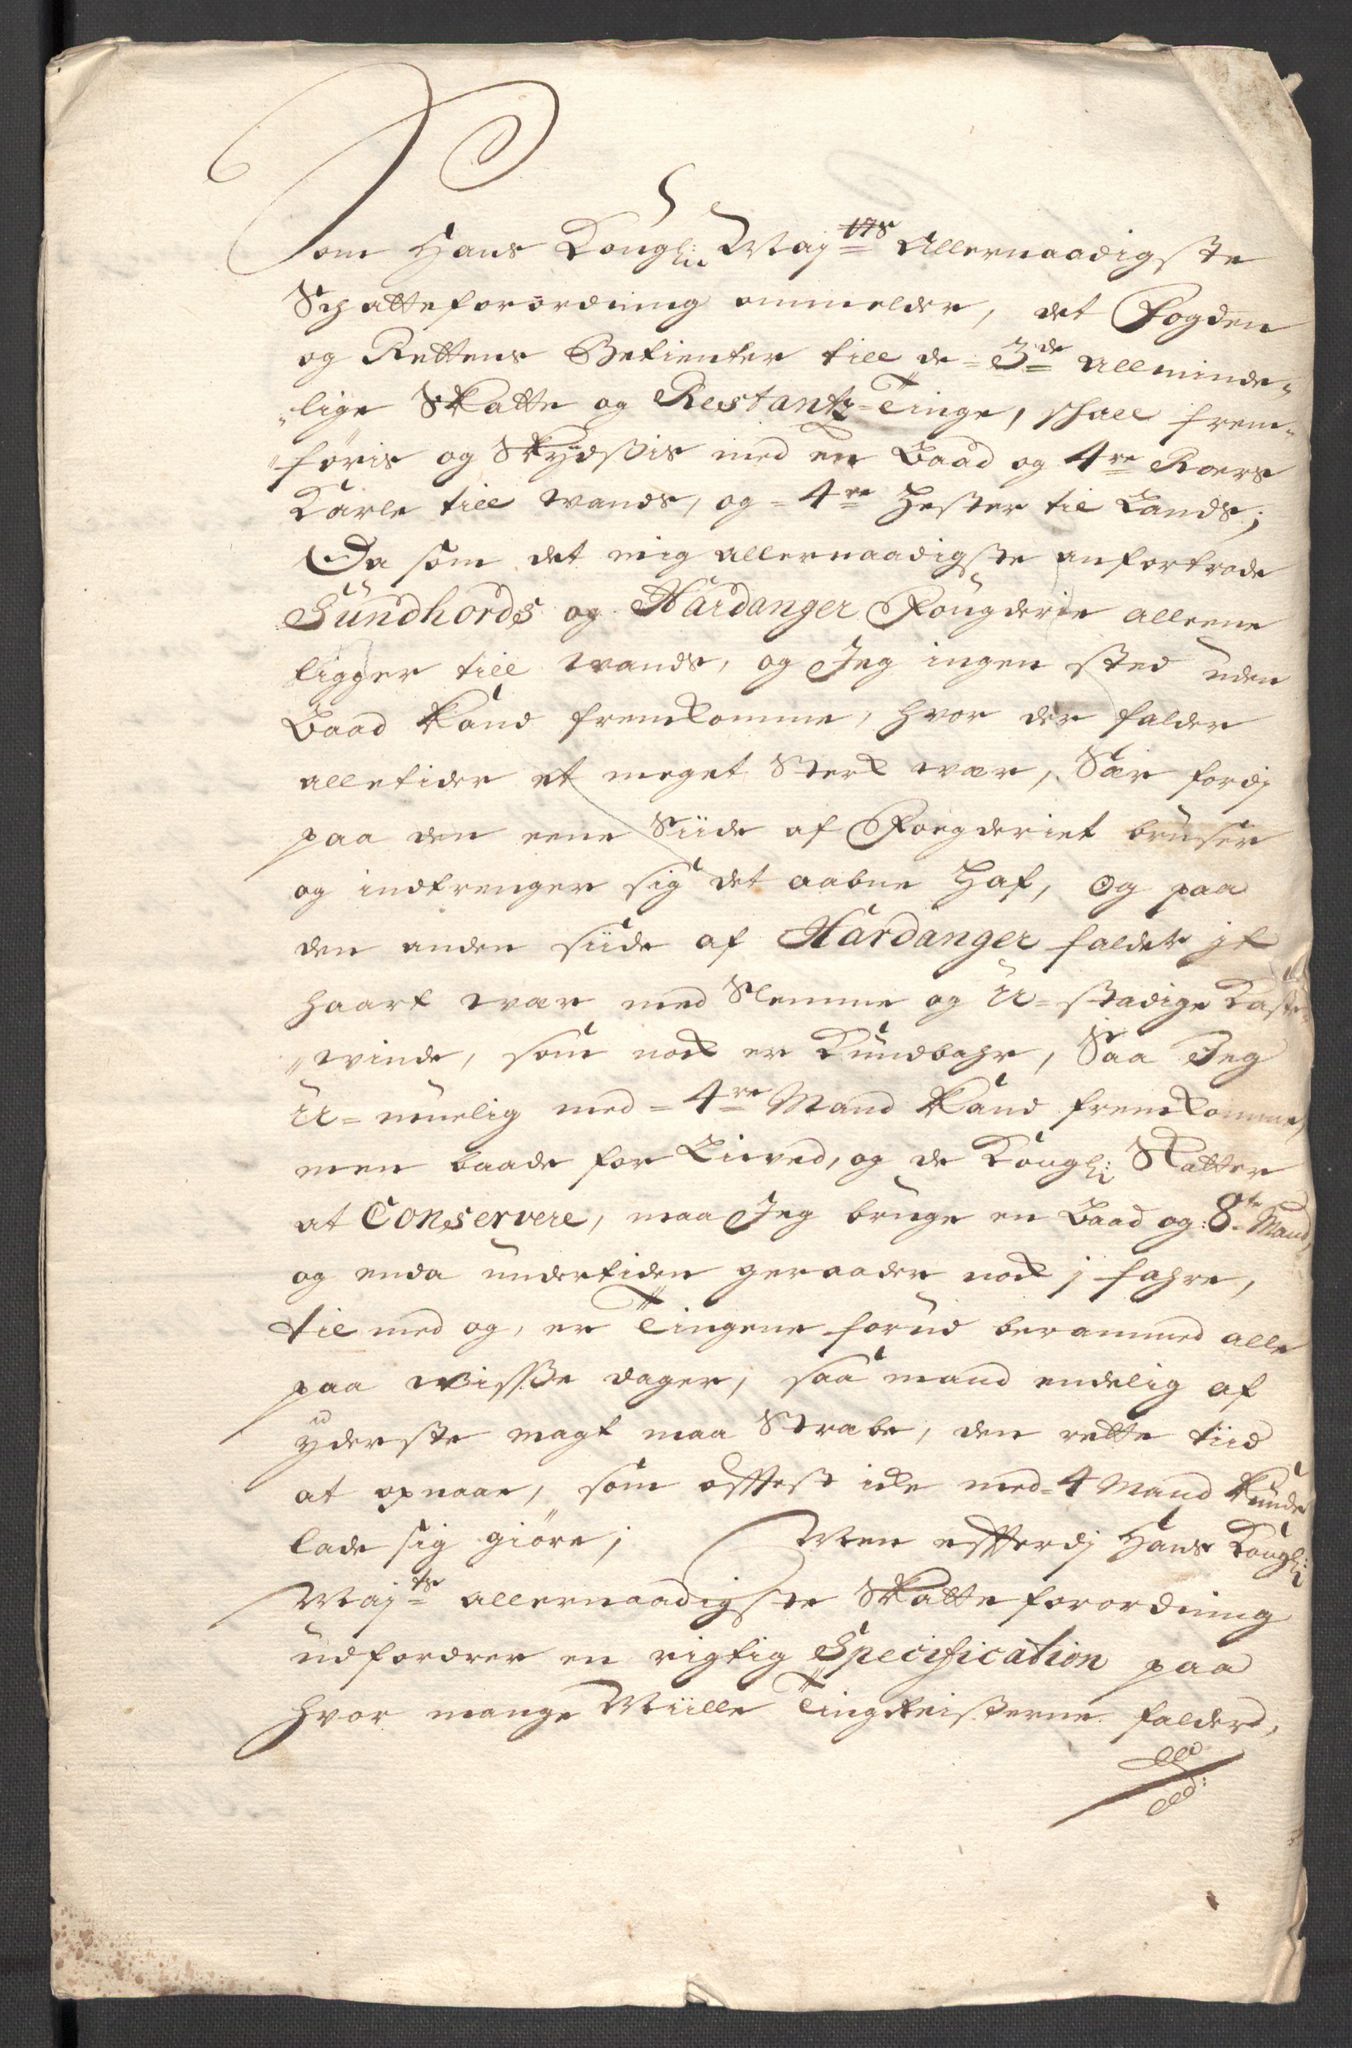 Som Hans Kongl: Maj:ts Allernaadigste
Schatteforordning ommelder, det Fogden
og Rettens Betienter till de 3de allminde-
lige Skatte og Restantz-Tinge, shall frem-
føris og Skydsßis med en Baad og 4re Roers
Karle till wands, og 4re Hester til Lands;
Da som det mig allernaadigste anfortrode
Sundhords og Hardanger Fougderie alleene
ligger till wands, og Jeg ingen sted uden
Baad Kand fremkomme, hvor der falder
alletider et meget Sterk wær, Sær fordj
paa den eene Siide af Foegderiet bruser
og indtrenger sig det aabne Haf, og paa
den anden siide af Hardanger falder jt
haart wær med Slemme og U-stadige Kaste-
winde, som nock er Kundbahr, Saa Jeg
U-muelig med 4re Mand Kand fremkomme,
men baade for Lived, og de Kongl: Skatter
at Conservere, maa Jeg bruge en Baad og 8te Mand,
og enda undertiden geraader nock j fahre,
til med og, er Tingene forud berammed alle
paa wisße dager, saa mand endelig af
yderste magt maa Strabe, den rette tiid
at opnaae, som offtest icke med 4 Mand Kunde
lade sig giøre; Men effterdj Hans Kongl:
Maj:ts allernaadigste Skatte forordning
udfordrer en rigtig Specification paa
hvor mange Miille Tingreisserne falder,